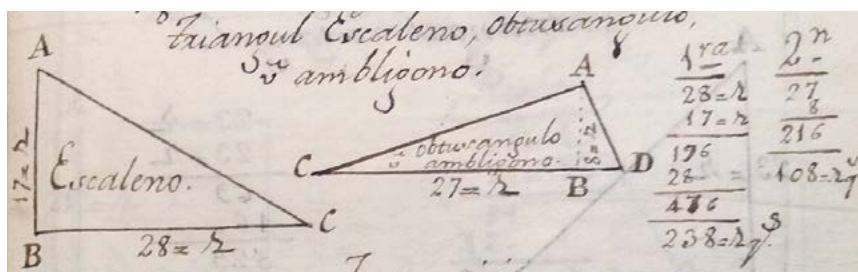 Triangul Escaleno, obtusangulo,
ũ ambligono.
A
17=2
Escaleno.
B
28=2
C
A
C
ũ obtusangulo
ambligono.
8=2
B
D
27=2
1ra
28=2
17=2
196
28 =
476
238=2qs
2n
27
8
216
108=2q